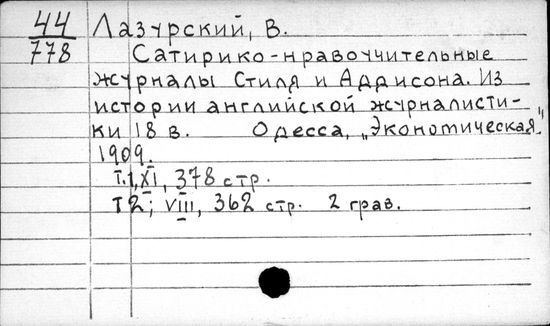 44
778
Лазурский, В.
Сатирико-нравоучительные
журналы Стиля и Аддисона. Из
истории английской журналисти-
ки 18 в. Одесса, „Экономическая",
1909.
т.1, XI, 378 стр.
т 2; VIII, 362 стр. 2 грав.